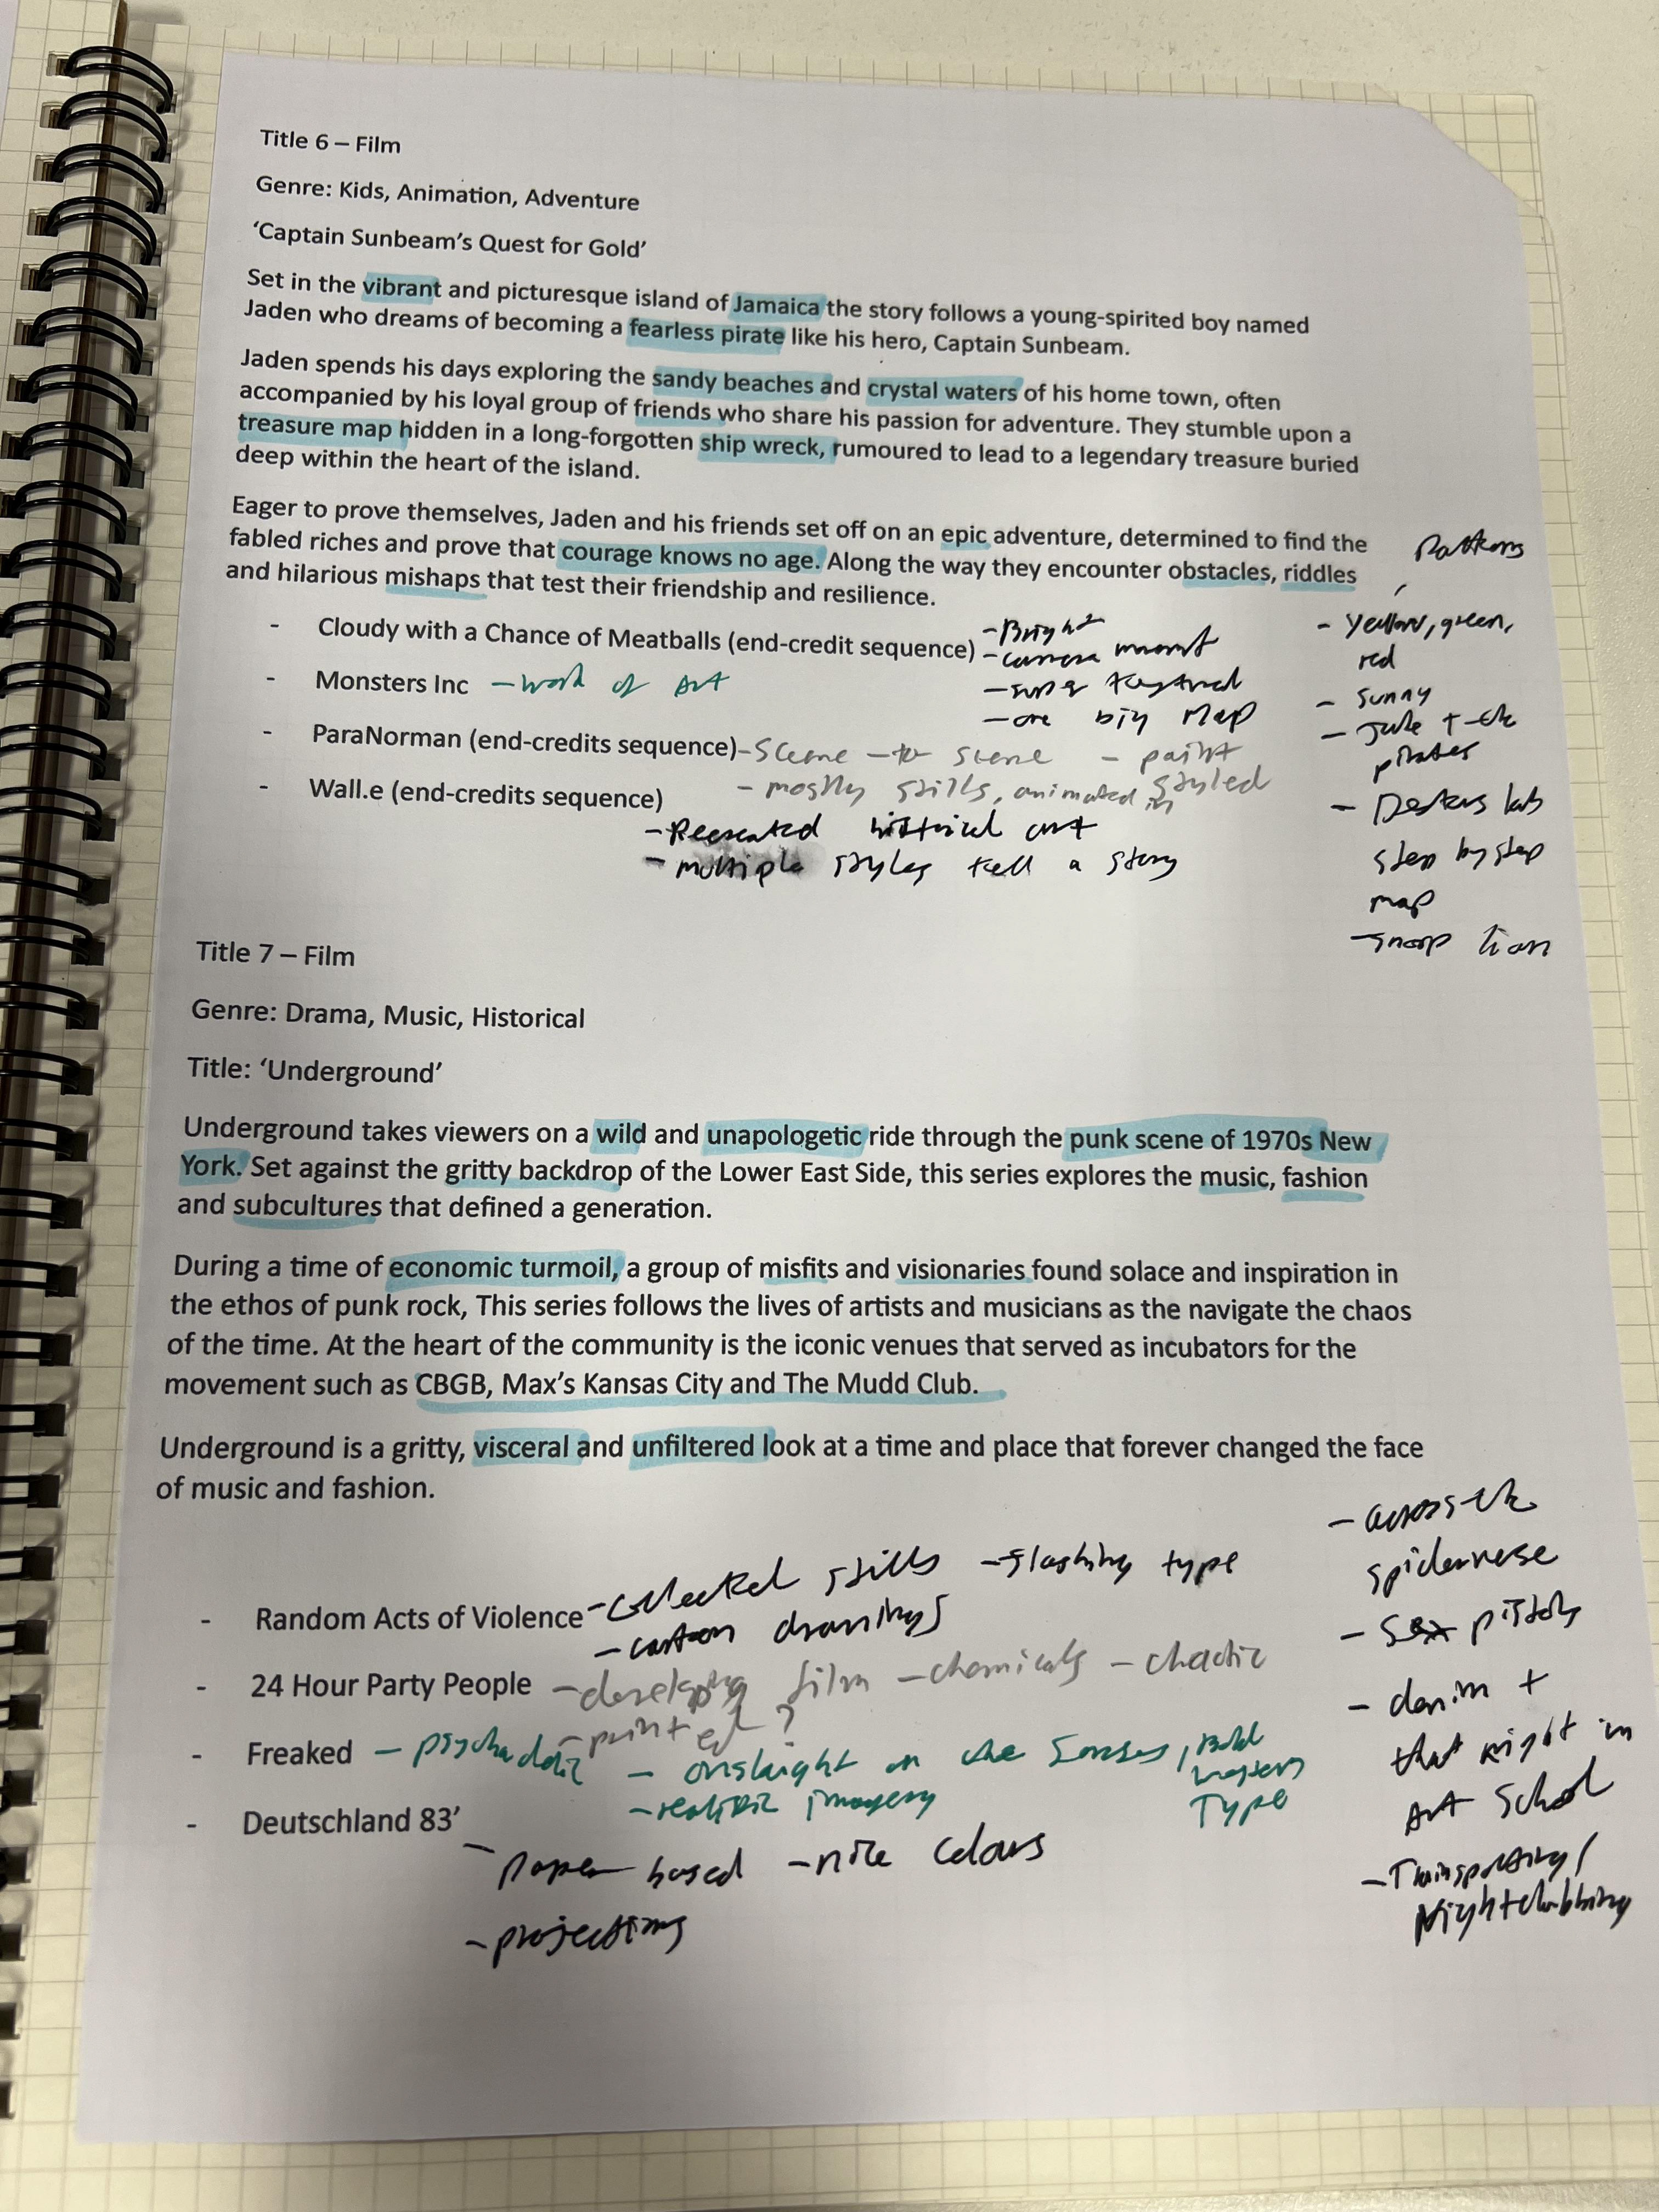 Title 6 – Film
Genre: Kids, Animation, Adventure
‘Captain Sunbeam’s Quest for Gold’
Set in the vibrant and picturesque island of Jamaica the story follows a young-spirited boy named
Jaden who dreams of becoming a fearless pirate like his hero, Captain Sunbeam.
Jaden spends his days exploring the sandy beaches and crystal waters of his home town, often
accompanied by his loyal group of friends who share his passion for adventure. They stumble upon a
treasure map hidden in a long-forgotten ship wreck, rumoured to lead to a legendary treasure buried
deep within the heart of the island.
Eager to prove themselves, Jaden and his friends set off on an epic adventure, determined to find the
fabled riches and prove that courage knows no age. Along the way they encounter obstacles, riddles
and hilarious mishaps that test their friendship and resilience.
- Cloudy with a Chance of Meatballs (end-credit sequence)
- Bright
- camera
- one big map
- Monsters Inc - work of Art
- ParaNorman (end-credits sequence) - Scene - to scene - paint styled
- mostly stills, animated in
- Wall.e (end-credits sequence)
- Recreated historical art
- multiple styles tell a story
Patterns
- Yellow, green,
red
- Sunny
- Jake + the
pirates
- Dexters lab
step by step
map
Title 7 – Film
Genre: Drama, Music, Historical
Title: ‘Underground’
Underground takes viewers on a wild and unapologetic ride through the punk scene of 1970s New
York. Set against the gritty backdrop of the Lower East Side, this series explores the music, fashion
and subcultures that defined a generation.
During a time of economic turmoil, a group of misfits and visionaries found solace and inspiration in
the ethos of punk rock, This series follows the lives of artists and musicians as the navigate the chaos
of the time. At the heart of the community is the iconic venues that served as incubators for the
movement such as CBGB, Max’s Kansas City and The Mudd Club.
Underground is a gritty, visceral and unfiltered look at a time and place that forever changed the face
of music and fashion.
- Random Acts of Violence - collected stills - flashing type
- cartoon drawings
- 24 Hour Party People - developing film - chemicals - chaotic
- printed?
- Freaked - psychadelic - onslaught on the senses, Bold
Type
- realistic imagery
- Deutschland 83’
- paper based - nice colours
- projections
- across the
spiderverse
- Sex pistols
- denim +
that night in
Art School
- Trainspotting/
Nightclubbing